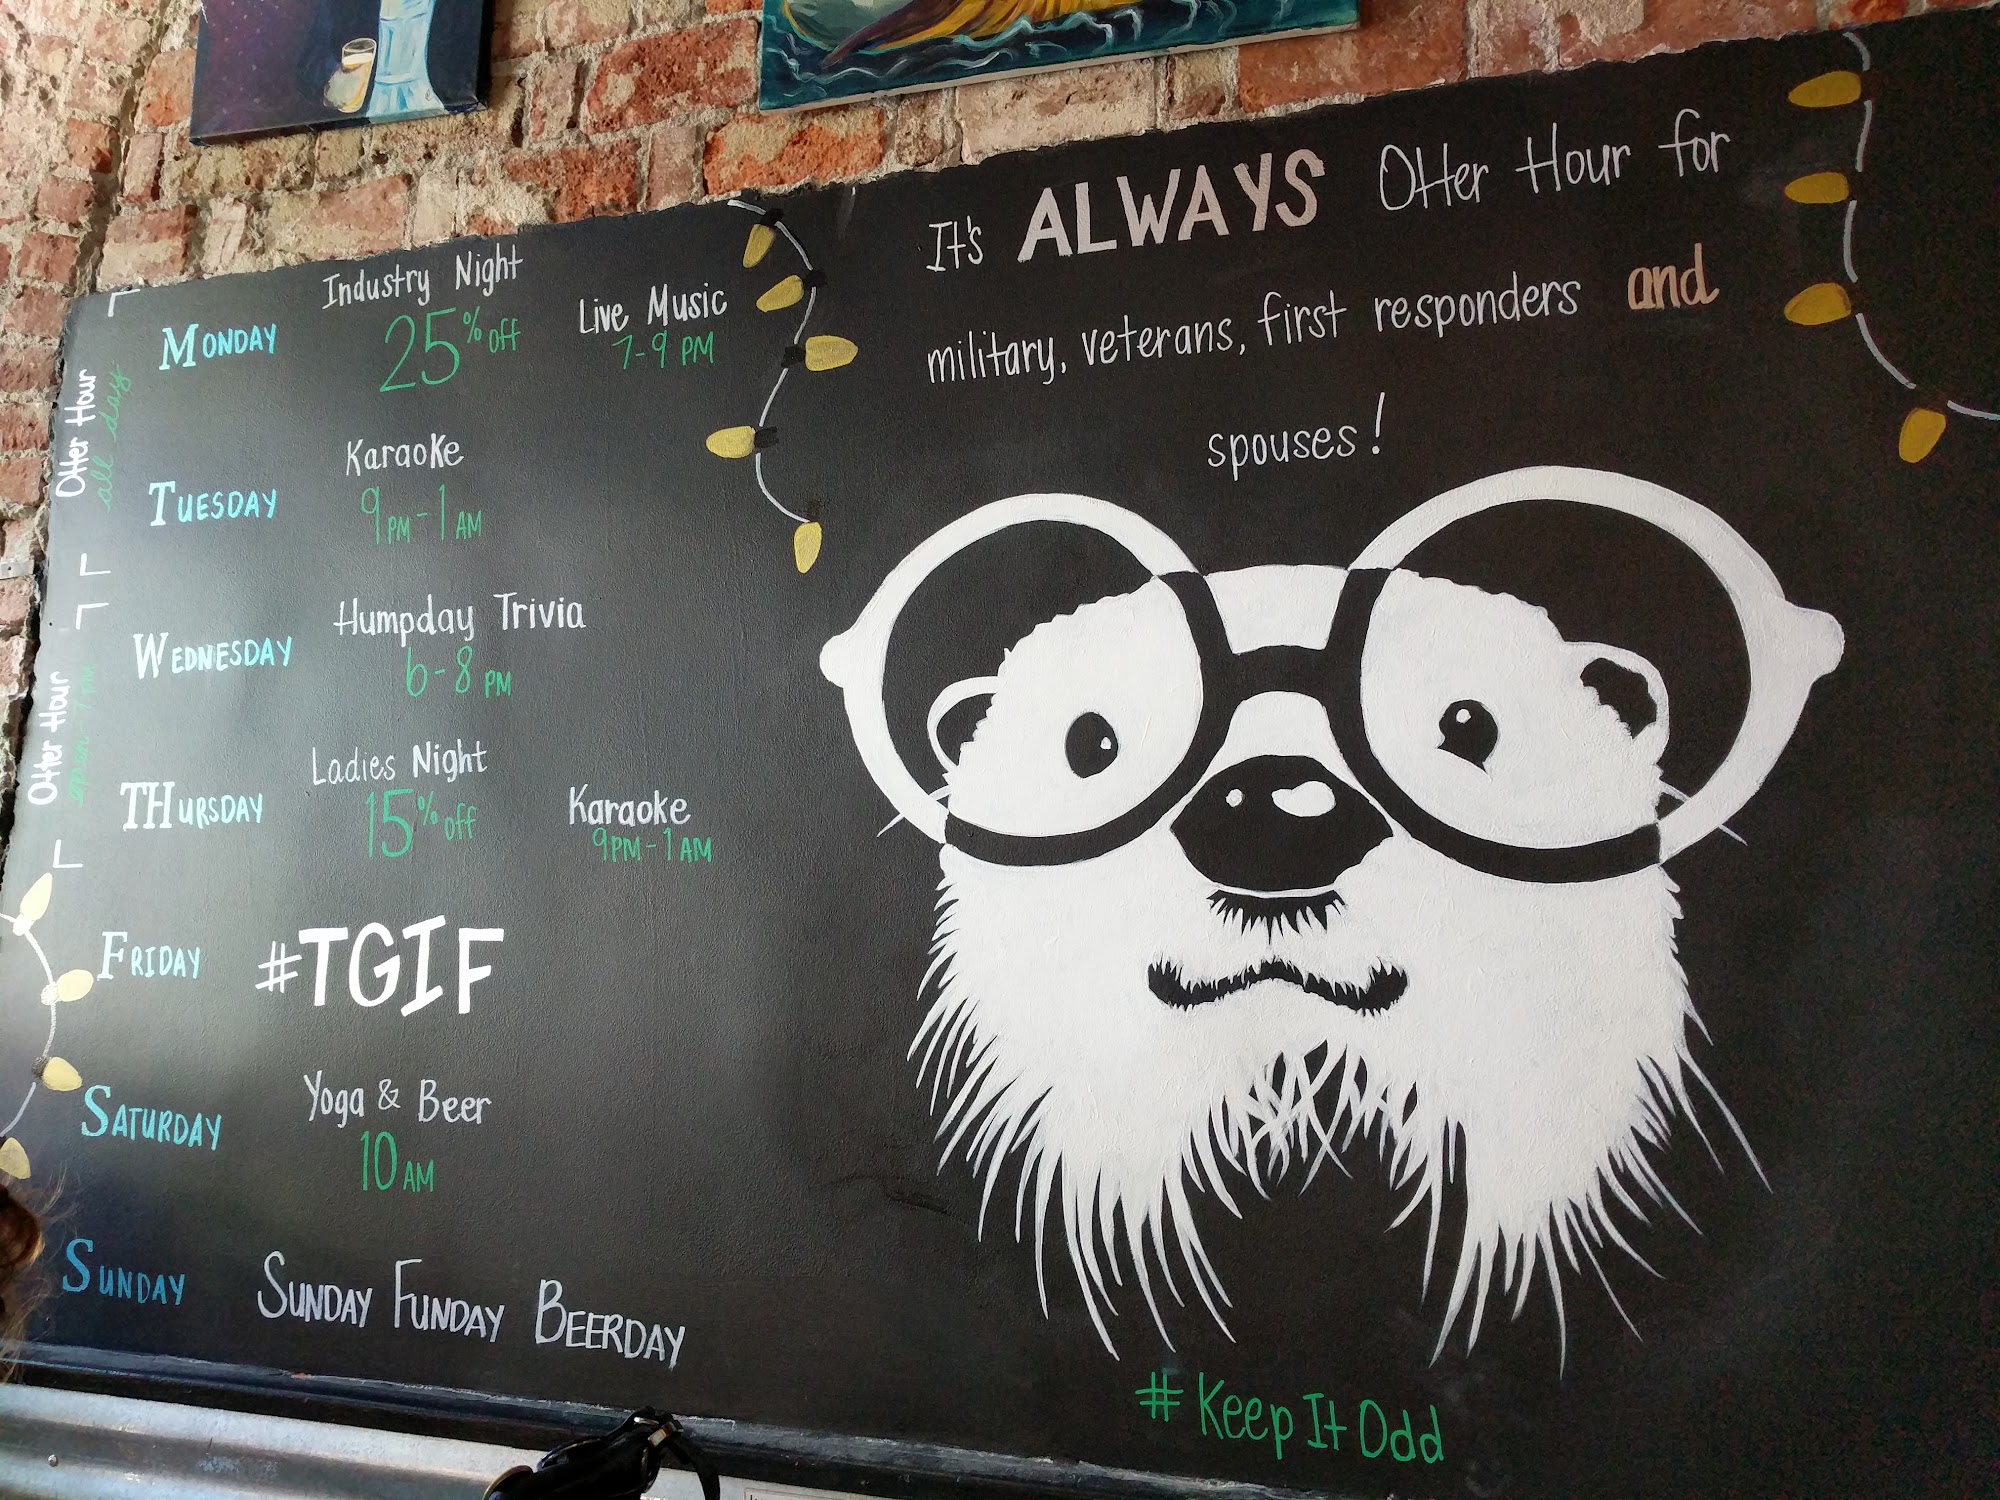 Otter Hour
all day
MONDAY
Industry Night
25% off
Live Music
7-9 PM
TUESDAY
Karaoke
9PM-1AM
Otter Hour
open-7pm
WEDNESDAY
Humpday Trivia
6-8 PM
THURSDAY
Ladies Night
15% off
Karaoke
9PM-1AM
FRIDAY
#TGIF
SATURDAY
Yoga & Beer
10 AM
SUNDAY
SUNDAY FUNDAY BEERDAY
It's ALWAYS Otter Hour for
military, veterans, first responders and
spouses!
#KeepItOdd